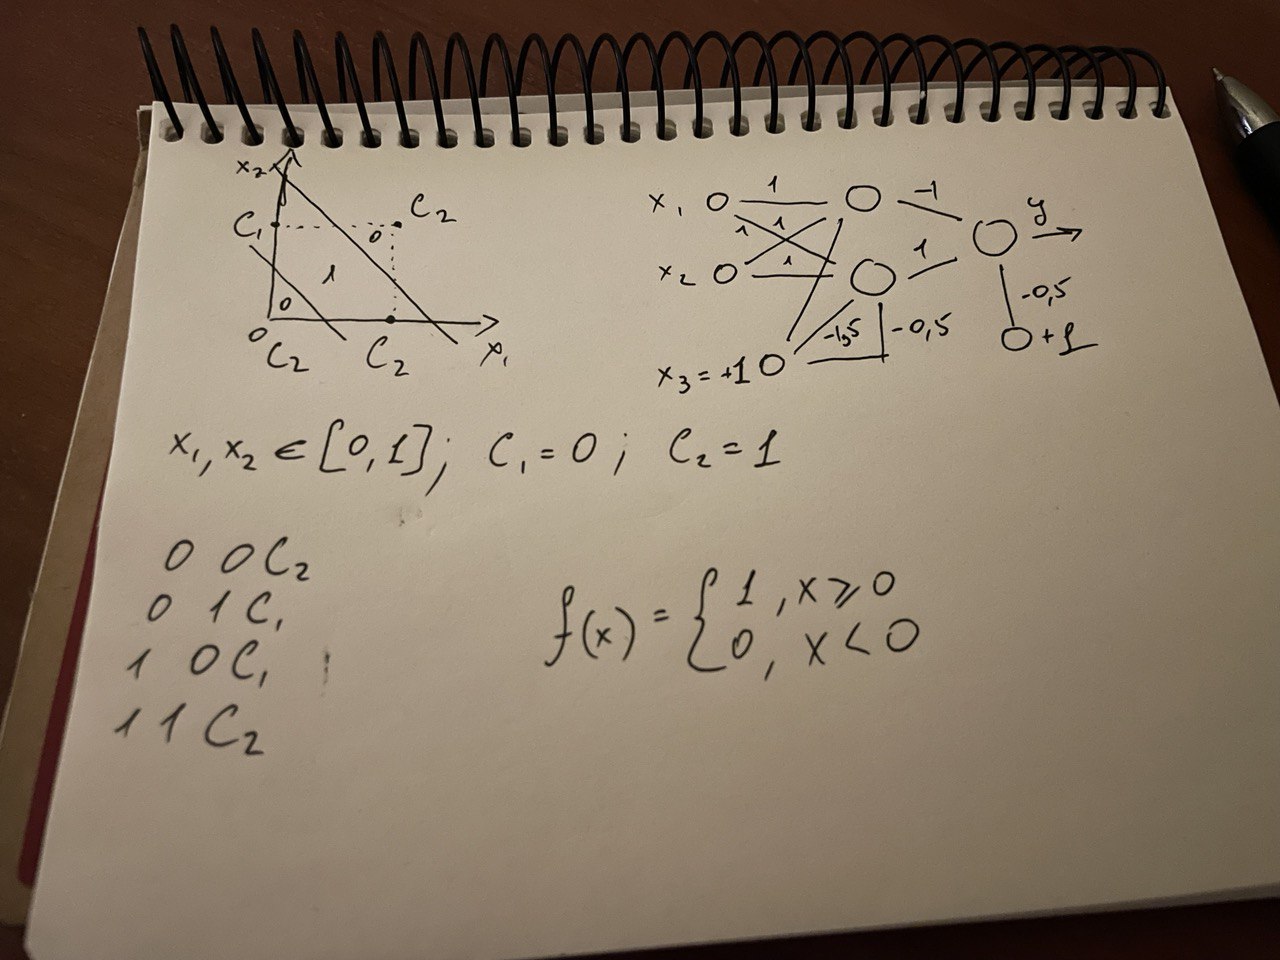 x₂
C₁
C₂
0
1
0
0
C₂
C₂
x₁
x₁
1
-1
y
1
1
x₂
1
1
-1,5
-0,5
-0,5
x₃ = +1
+1
x₁, x₂ ∈ [0, 1]; C₁ = 0; C₂ = 1
0 0 C₂
0 1 C₁
1 0 C₁
1 1 C₂
f(x) = { 1, x ⩾ 0
0, x < 0